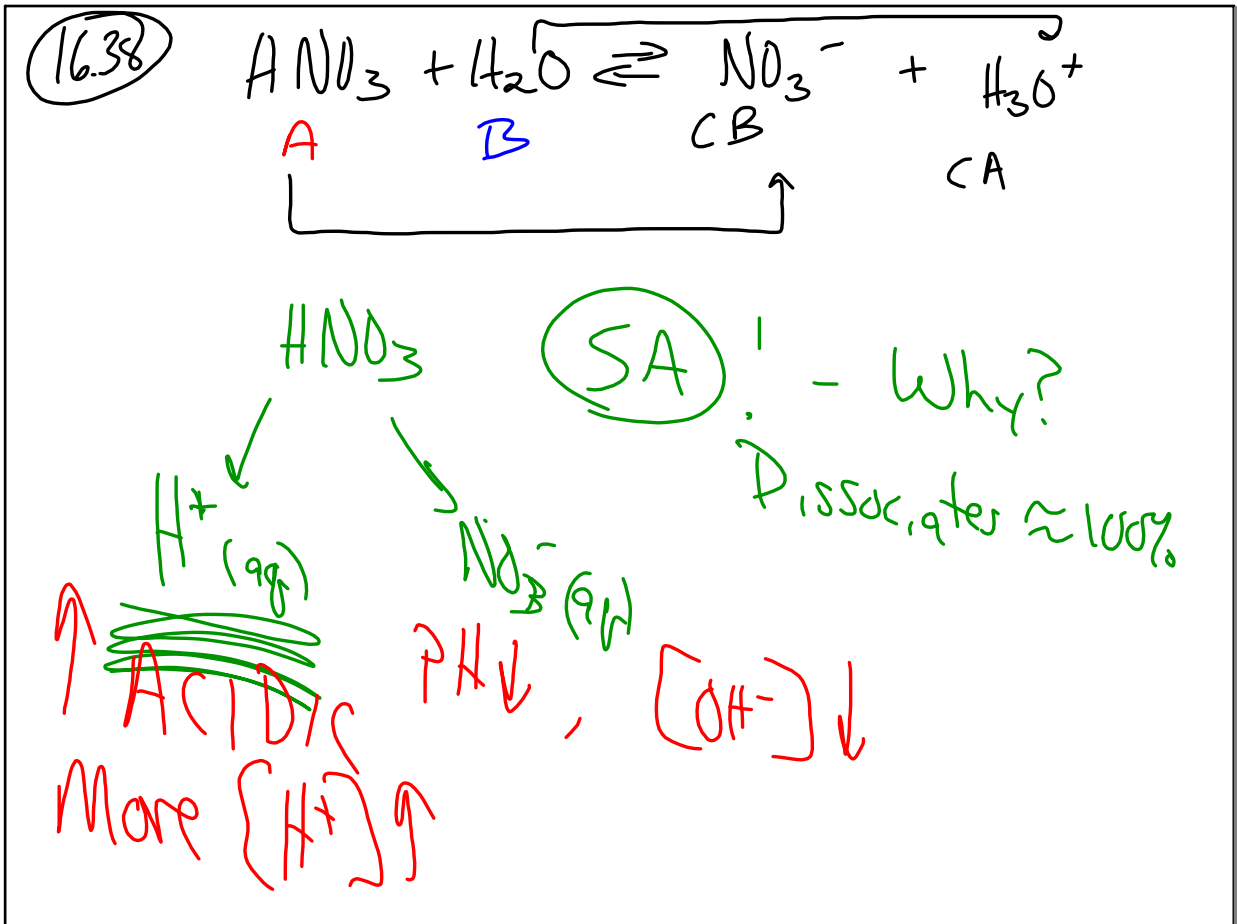 16.38
HNO₃ + H₂O ⇌ NO₃⁻ + H₃O⁺
A B CB CA
HNO₃ SA! - Why?
Dissociates ≈100%
H⁺(aq) NO₃⁻(aq)
↑ ACIDIC PH↓, [OH⁻]↓
More [H⁺]↑